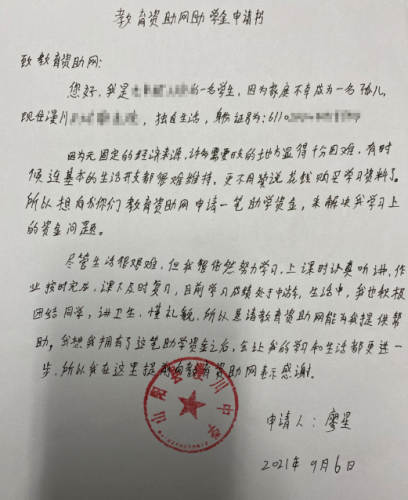 教育资助网助学金申请书
致教育资助网:
您好,我是 的一名学生,因为家庭不幸成为一名孤儿,
现在漫川 ,独自生活,身份证号为:6110
因为无固定的经济来源,许多需要钱的地方显得十分困难,有时
候连基本的生活开支都很难维持,更不用说花钱购买学习资料了。
所以想向你们教育资助网申请一笔助学资金,来解决我学习上
的资金问题。
尽管生活很艰难,但我都依然努力学习,上课时认真听讲,作
业按时完成,课下及时复习,目前学习成绩处于中游,生活中,我也积极
团结同学,讲卫生,懂礼貌,所以恳请教育资助网能为我提供帮
助。我想我拥有了这笔助学资金之后,会让我的学习和生活都更进一
步,所以我在这里提前向教育资助网表示感谢。
山阳县漫川中学
申请人:廖星
2021年9月6日